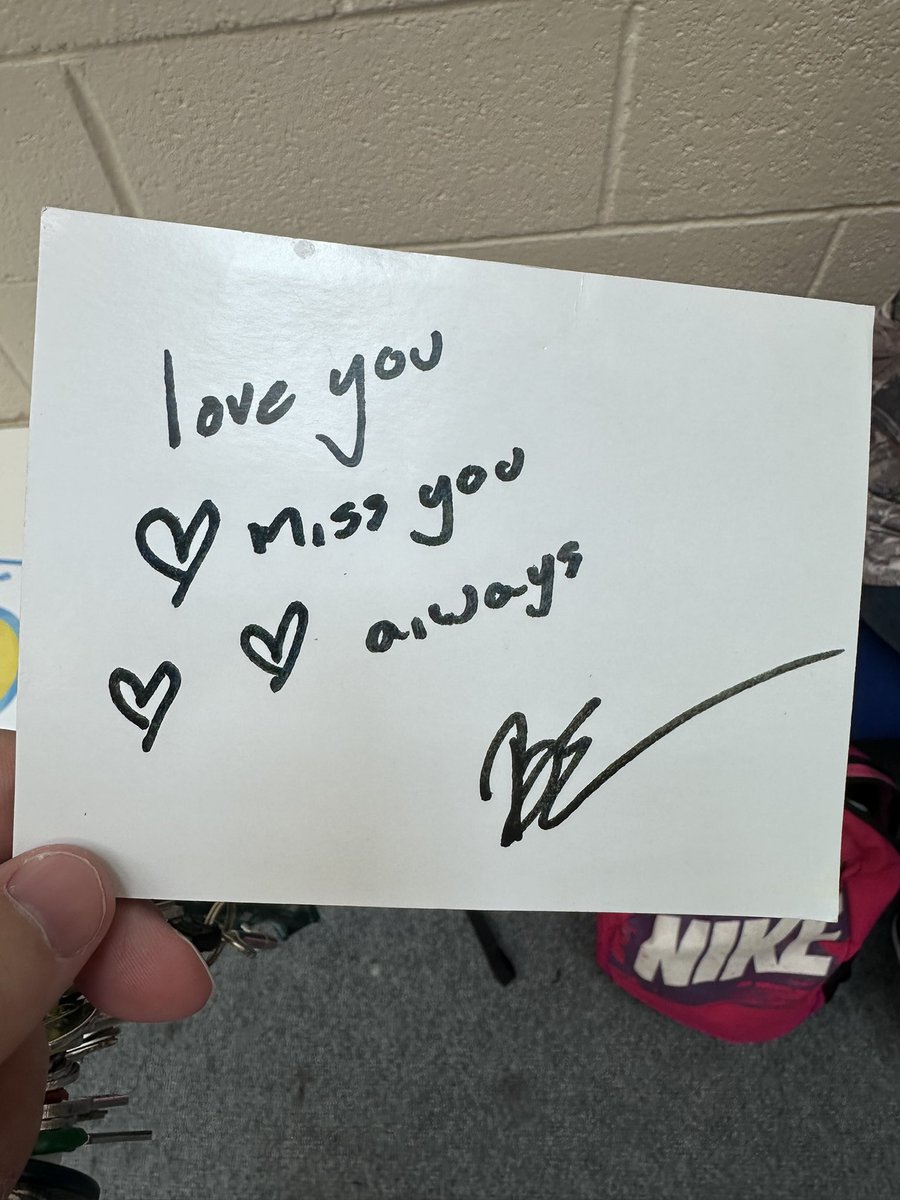 love you
♡ miss you
♡ ♡ always
NIKE